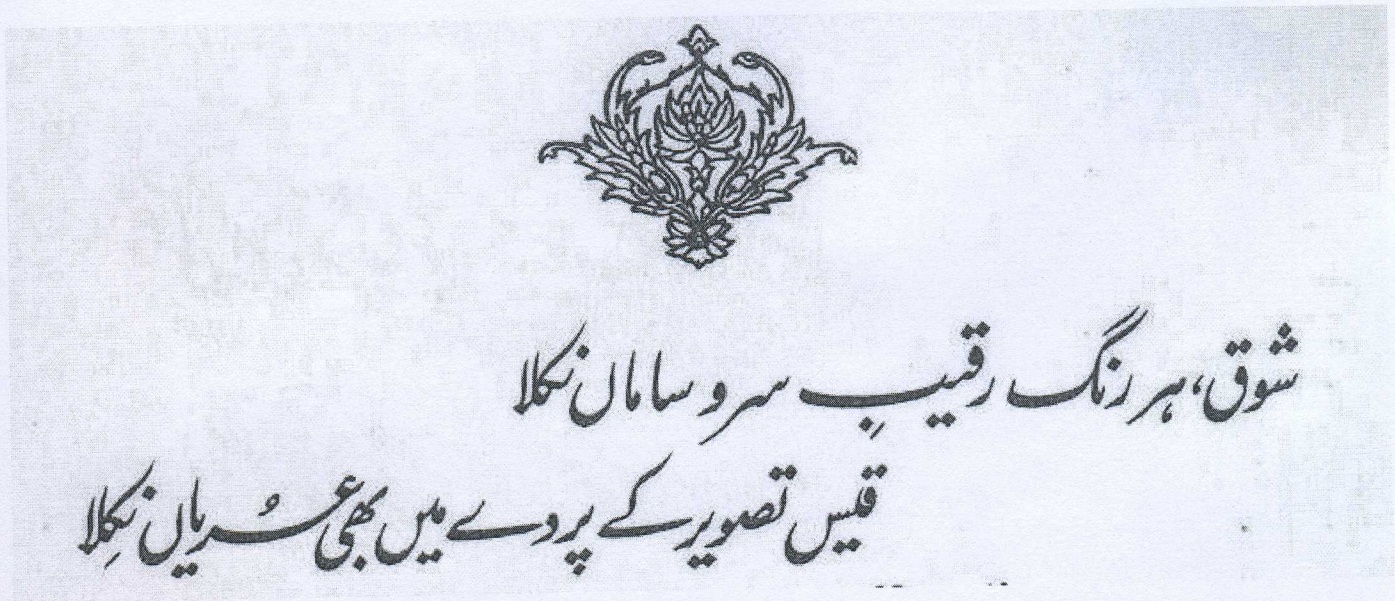 شوق، ہر رنگ رقیبِ سر و ساماں نکلا
قیس تصویر کے پردے میں بھی عُریاں نِکلا